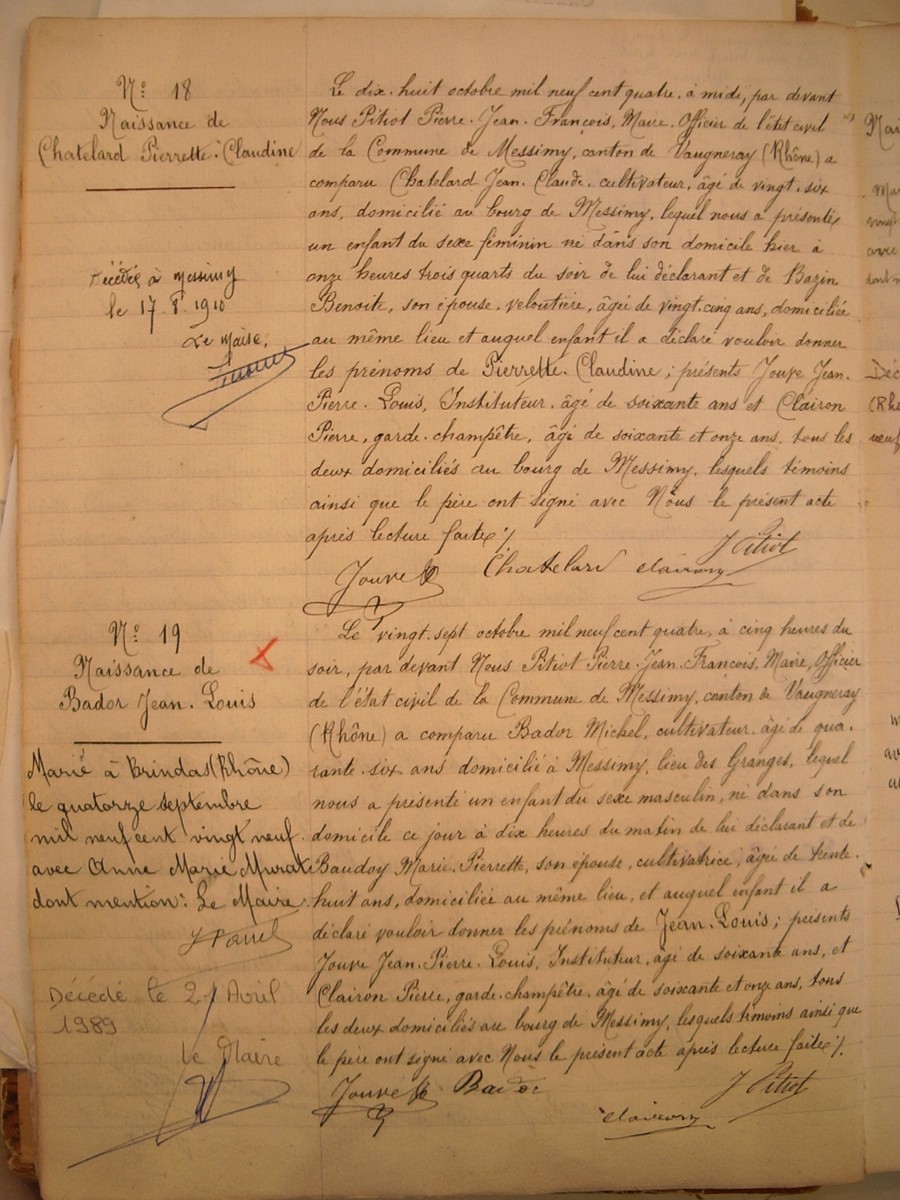 N° 18
Naissance de
Chatelard Pierrette-Claudine
Décédée à Messimy
le 17.8.1910
Le Maire,
Le dix-huit octobre mil neuf cent quatre, à midi, par devant
Nous Pitiot Pierre-Jean-François, Maire, Officier de l'état civil
de la Commune de Messimy, canton de Vaugneray (Rhône) a
comparu Chatelard Jean-Claude, cultivateur, âgé de vingt-six
ans, domicilié au bourg de Messimy, lequel nous a présenté
un enfant du sexe féminin né dans son domicile hier à
onze heures trois quarts du soir de lui déclarant et de Bazin
Benoîte, son épouse, veloutière, âgée de vingt-cinq ans, domiciliée
au même lieu et auquel enfant il a déclaré vouloir donner
les prénoms de Pierrette-Claudine ; présents Jouve Jean-
Pierre-Louis, Instituteur, âgé de soixante ans et Clairon
Pierre, garde-champêtre, âgé de soixante et onze ans, tous les
deux domiciliés au bourg de Messimy, lesquels témoins
ainsi que le père ont signé avec Nous le présent acte
après lecture faite ./.
Jouve Chatelard Clairon J Pitiot
N° 19
Naissance de
Bador Jean-Louis
Marié à Brindas (Rhône)
le quatorze septembre
mil neuf cent vingt neuf
avec Anne Marie Murat
dont mention : Le Maire
Décédé le 21 Avril
1989
le Maire
Le vingt-sept octobre mil neuf cent quatre, à cinq heures du
soir, par devant Nous Pitiot Pierre-Jean-François, Maire, Officier
de l'état civil de la Commune de Messimy, canton de Vaugneray
(Rhône) a comparu Bador Michel, cultivateur, âgé de qua-
rante-six ans domicilié à Messimy, lieu des Granges, lequel
nous a présenté un enfant du sexe masculin, né dans son
domicile ce jour à dix heures du matin de lui déclarant et de
Baudoy Marie-Pierrette, son épouse, cultivatrice, âgée de trente-
huit ans, domiciliée au même lieu, et auquel enfant il a
déclaré vouloir donner les prénoms de Jean-Louis ; présents
Jouve Jean-Pierre-Louis, Instituteur, âgé de soixante ans, et
Clairon Pierre, garde-champêtre, âgé de soixante et onze ans, tous
les deux domiciliés au bourg de Messimy, lesquels témoins ainsi que
le père ont signé avec Nous le présent acte après lecture faite ./.
Jouve Bador Clairon J Pitiot